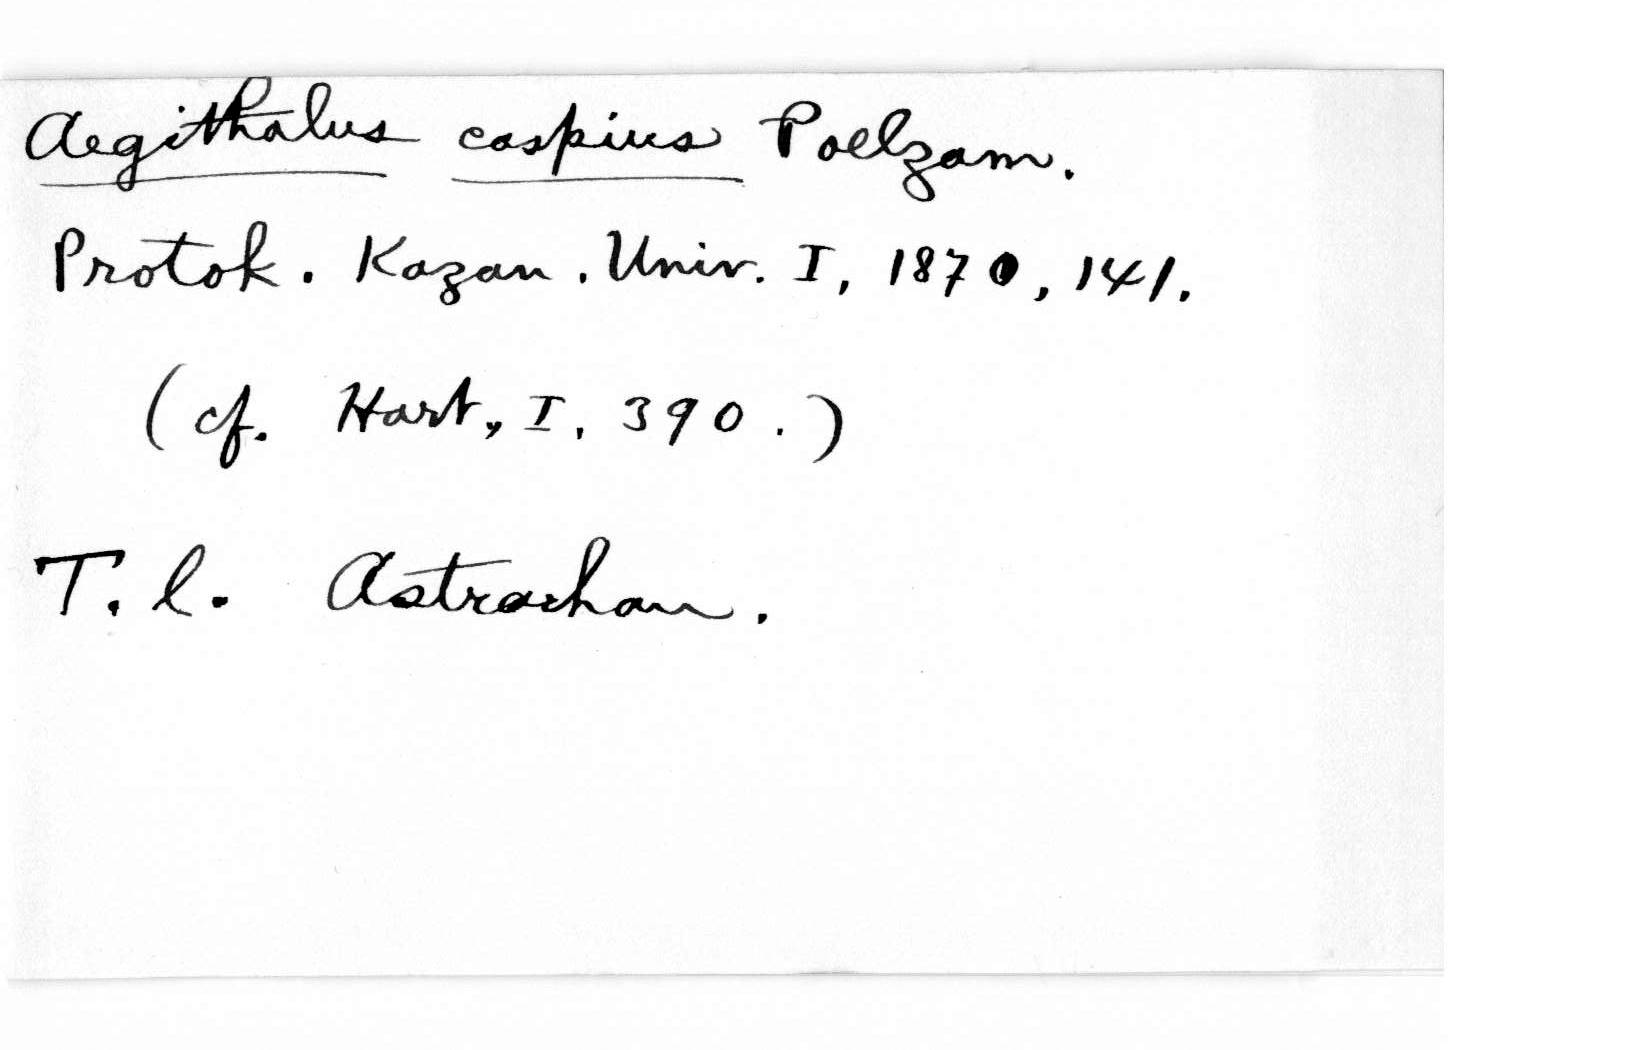 Aegithalus caspius Poelzam.
Protok. Kazan. Univ. I, 1870, 141.
(cf. Hart, I, 390.)
T. l. Astrachan.